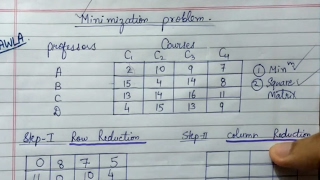 Minimization problem.
AWLA
Professors Courses
C1 C2 C3 C4
A 2 10 9 7
B 15 4 14 8
C 13 14 16 11
D 4 15 13 9
① Min^m
② Square Matrix
Step-I Row Reduction
Step-II Column Reduction
0 8 7 5
11 0 10 4